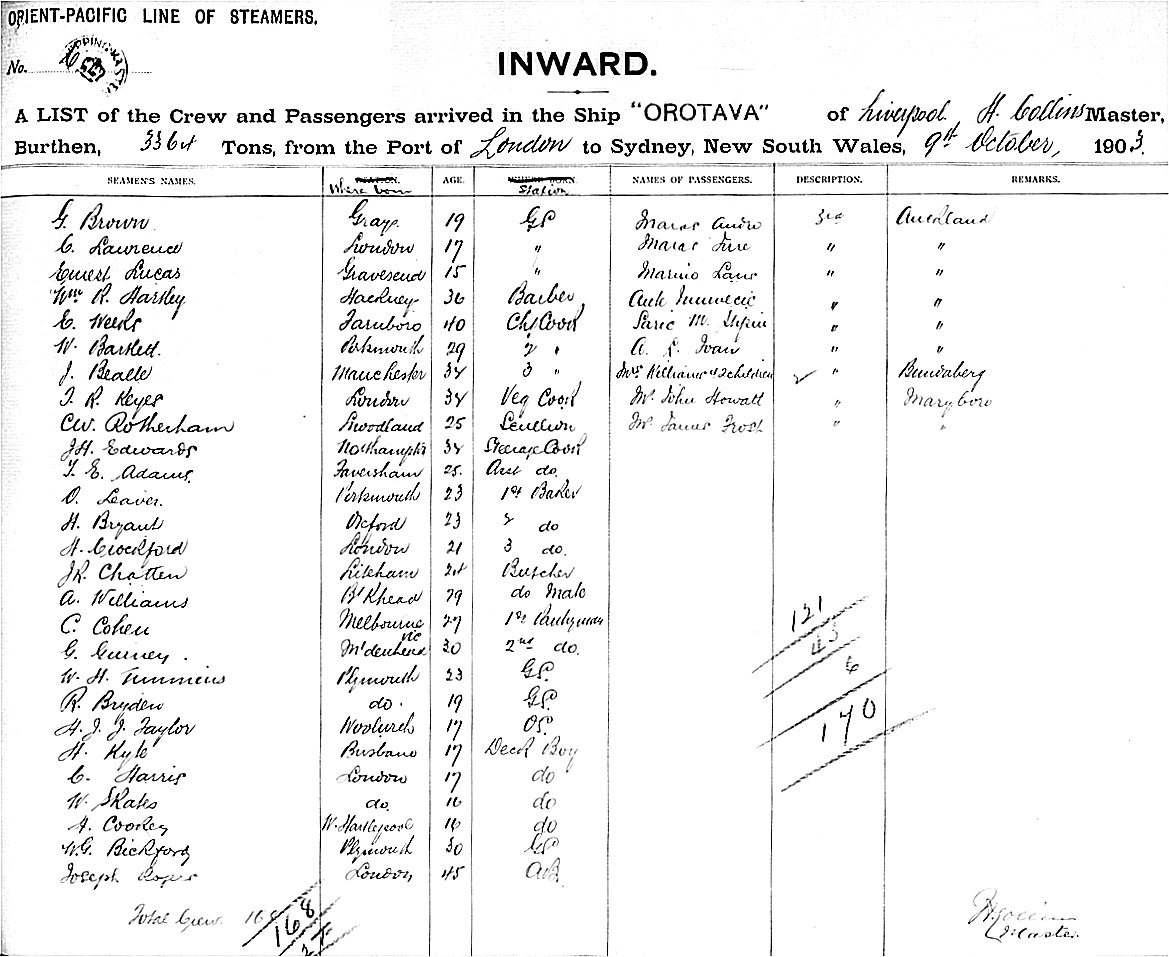 ORIENT-PACIFIC LINE OF STEAMERS.
No.
INWARD.
A LIST of the Crew and Passengers arrived in the Ship "OROTAVA" of Liverpool, H. Collins Master,
Burthen, 3364 Tons, from the Port of London to Sydney, New South Wales, 9th October, 1903.
SEAMEN'S NAMES. Where born AGE. Station NAMES OF PASSENGERS. DESCRIPTION. REMARKS.
G. Brown Grays 19 GS Maras Andro 3rd Auckland
C. Lawrence London 17 " Maras Jure " "
Ernest Lucas Gravesend 15 " Marino " "
Wm R. Hartley Hackney 36 Barber " "
E. Weeks Farnboro 40 Chf Cook " "
W. Bartlett Portsmouth 29 2 " A. L. Ivan " "
J. Bealle Manchester 34 3 " Mrs Williams & 2 children " Bundaberg
T. R. Keyes London 34 Veg Cook Mr John Howatt " Maryboro
CW. Rotherham 25 Scullion Mr James Frost " "
JH. Edwards Northampton 34 Steerage Cook
T. E. Adams Faversham 25 Asst do.
O. Leaver Portsmouth 23 1st Baker
H. Bryant Oxford 23 2 do
H. Crockford London 21 3 do.
JR. Chatten 24 Butcher
A. Williams B'Khead 29 do Mate
C. Cohen Melbourne Vic 27 1st Pantryman
G. Gurney. M'denhead 30 2nd do.
W. H. Timmins Plymouth 23 GS.
R. Bryden do. 19 GS.
H. J. J. Taylor Woolwich 17 OS.
H. Kyle Brisbane 17 Deck Boy
C. Harris London 17 do
W. Skates do. 16 do
H. Cookey W. Hartlepool 16 do
W.G. Bickford Plymouth 30 GS
Joseph Roper London 45 AB.
121
43
6
170
Total Crew. 168
168
H Collins
Master.